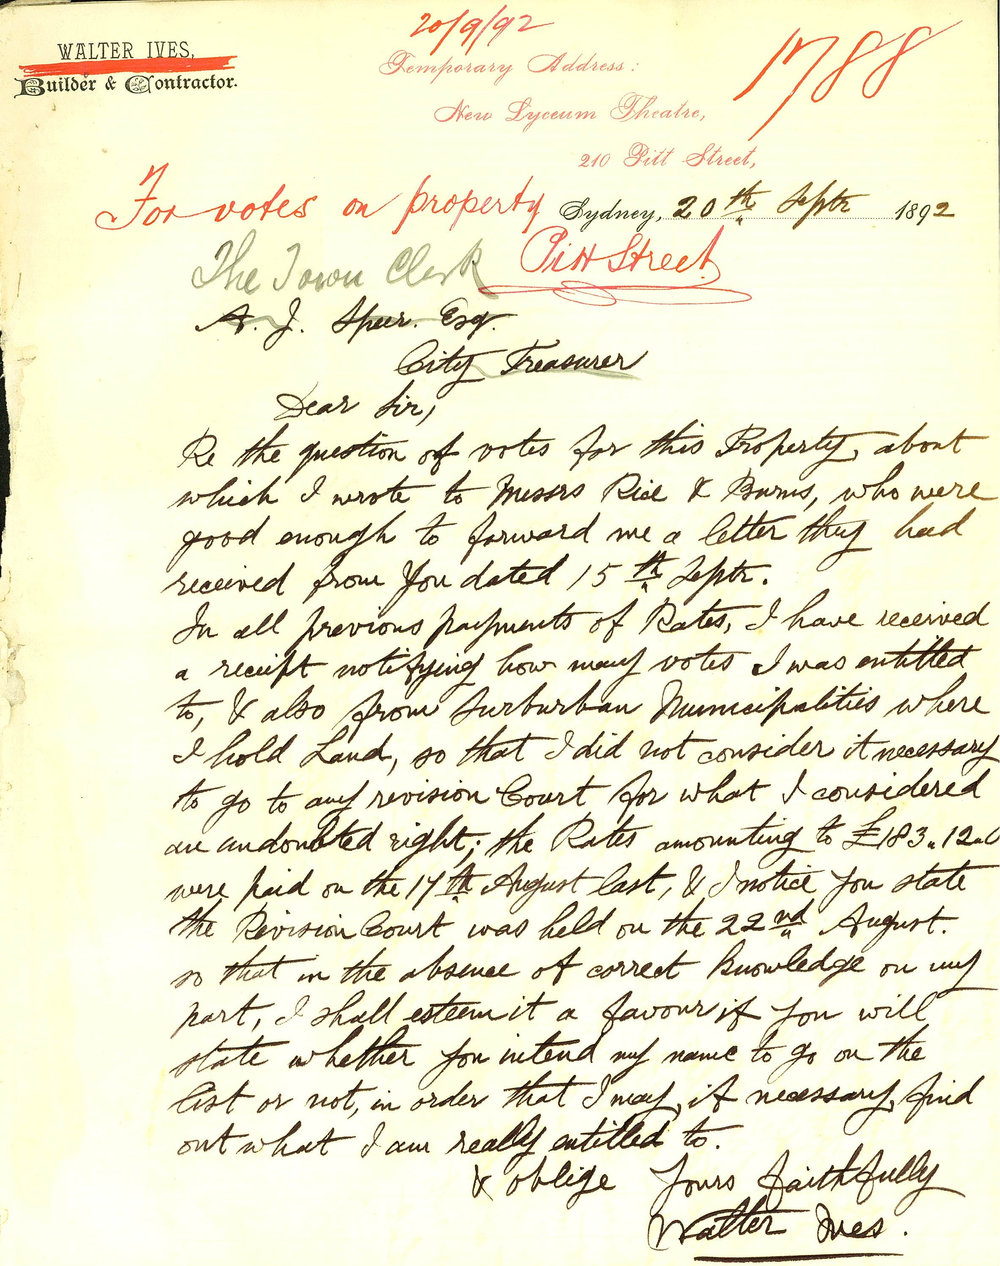 20/9/92
WALTER IVES,
Builder & Contractor.
Temporary Address:
New Lyceum Theatre,
210 Pitt Street,
1788
For votes on property
Pitt Street
Sydney, 20th Septr 1892
The Town Clerk
A. J. Speer. Esq.
City Treasurer
Dear Sir,
Re the question of votes for this Property, about
which I wrote to Messrs Rice & Burns, who were
good enough to forward me a letter they had
received from You dated 15th Septr.
In all previous payments of Rates, I have received
a receipt notifying how many votes I was entitled
to, & also from Surburban Municipalities where
I hold Land, so that I did not consider it necessary
to go to any revision Court for what I considered
an undoubted right; the Rates amounting to £183.12.0
were paid on the 17th August last, & I notice you state
the Revision Court was held on the 22nd August.
so that in the absence of correct knowledge on my
part, I shall esteem it a favour if you will
state whether you intend my name to go on the
list or not, in order that I may, if necessary, find
out what I am really entitled to.
& oblige Yours faithfully
Walter Ives.